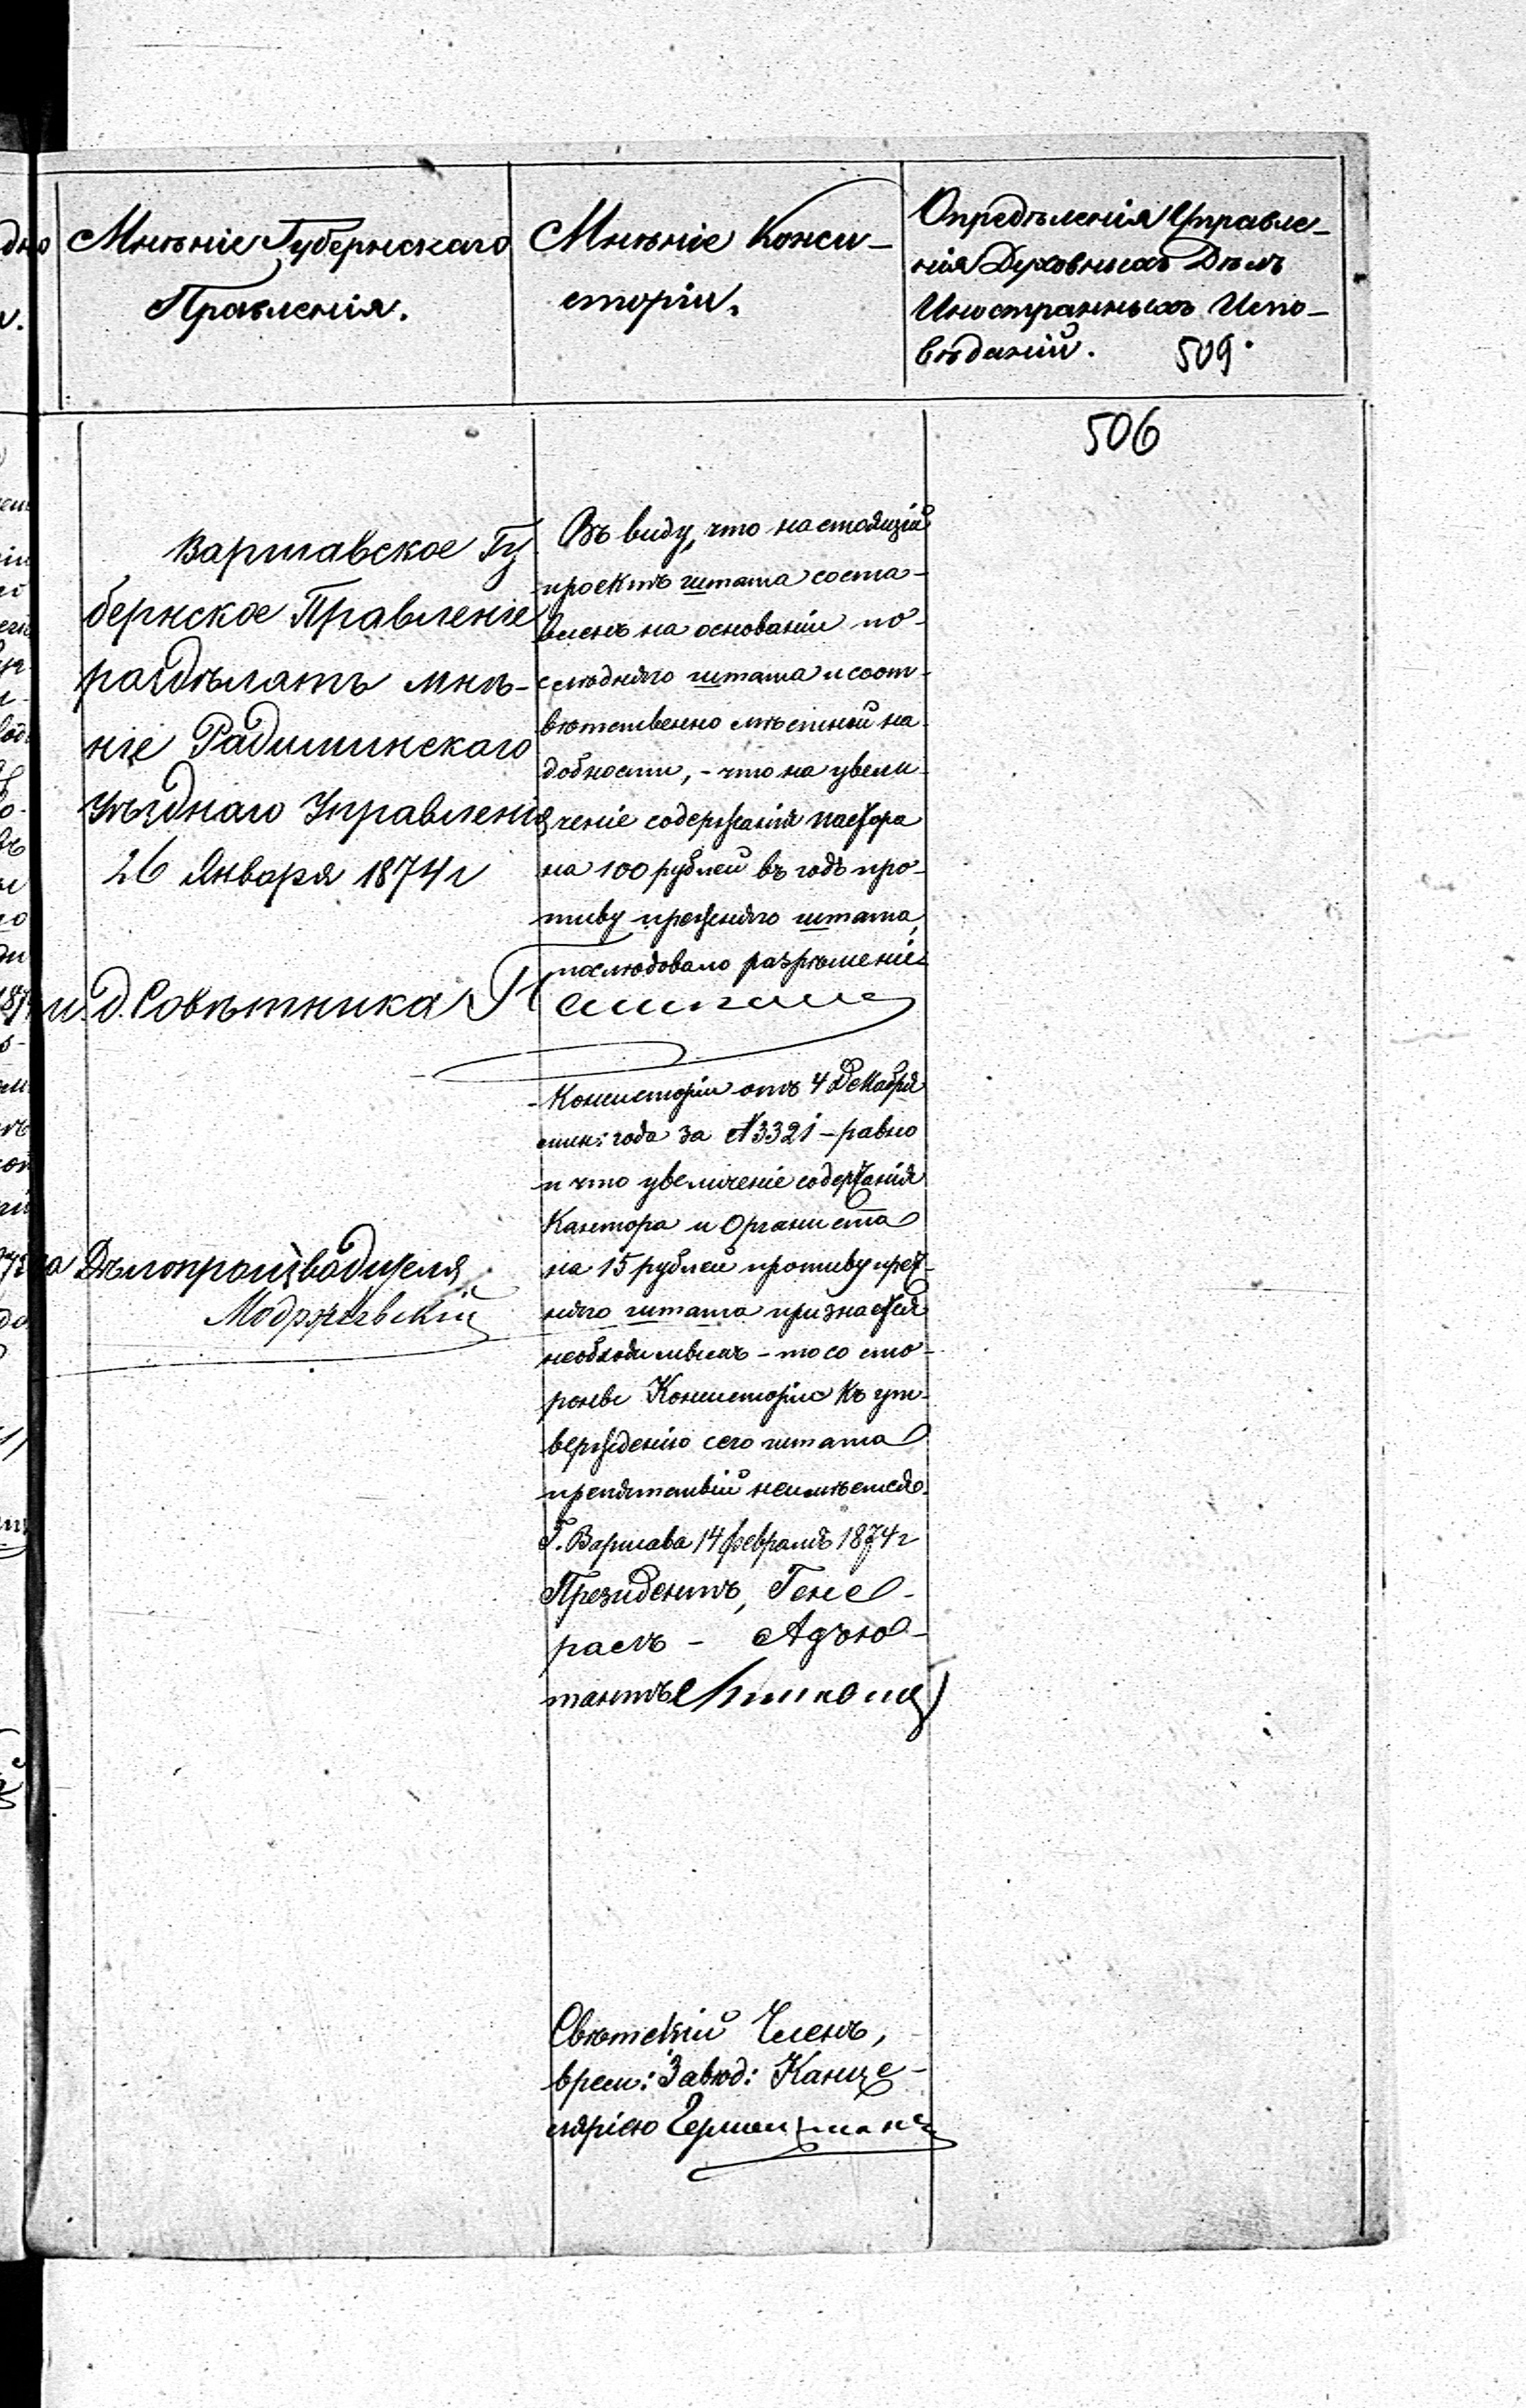 Мнѣніе Губернскаго
Правленія.
Мнѣніе Конси-
сторіи.
Опредѣленія Управле-
нія Духовныхъ Дѣлъ
Иностранныхъ Испо-
вѣданій. 509.
506
Варшавское Гу
бернское Правленіе
раздѣлятъ мнѣ-
ніе Радиминскаго
Уѣзднаго Управленія
26 Января 1874 г
и. д. Совѣтника
за Дѣлопроизводителя
Въ виду, что настоящій
проектъ штата соста-
вленъ на основаніи по-
слѣдняго штата и соот-
вѣтственно мѣстной на
добности, - что на увели-
ченіе содержанія пастора
на 100 рублей въ годъ про-
тиву прежняго штата,
послѣдовало разрѣшеніе
Консисторіи отъ 4 Декабря
мин: года за N 3321 - равно
и что увеличеніе содержанія
Кантора и Органиста
на 15 рублей противу преж-
няго штата признается
необходимымъ - то со сто-
роны Консисторіи къ ут-
вержденію сего штата
препятствій неимѣется.
Г. Варшава 14 февраля 1874 г
Президентъ, Гене-
ралъ - Адъю-
тантъ
Свѣтскій Членъ,
врем: Завѣд: Канце-
ляріею